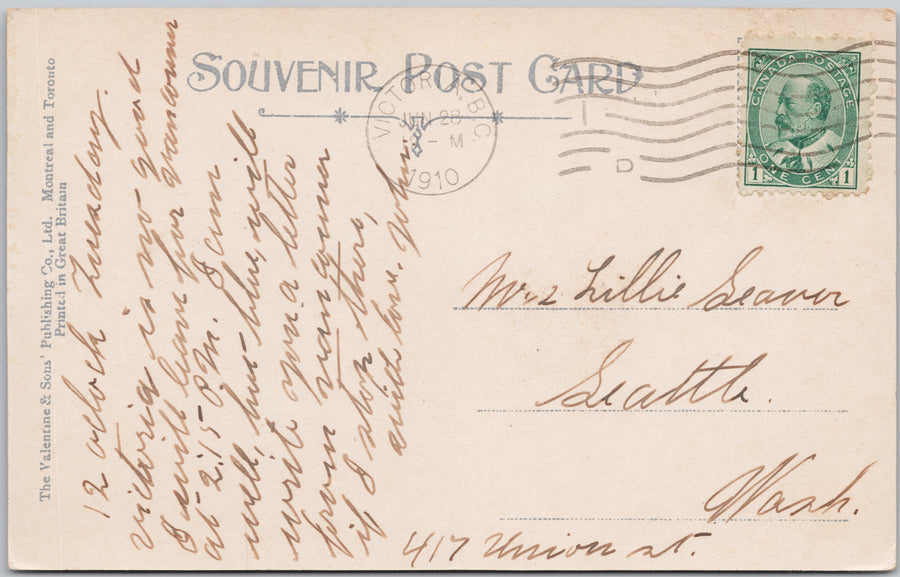 The Valentine & Sons' Publishing Co., Ltd. Montreal and Toronto
Printed in Great Britain
SOUVENIR POST CARD
VICTORIA, B.C.
JUN 28
- M
1910
D
CANADA POSTAGE
ONE CENT
1 1
12 oclock Tuesday.
Victoria is no good
I will leave for Vancouver
at 2.15 P.M. I am
well, but blue, will
write you a letter
from Vancouver
if I stop there,
with love,
Mrs Lillie Seaver
Seattle.
Wash.
417 Union st.